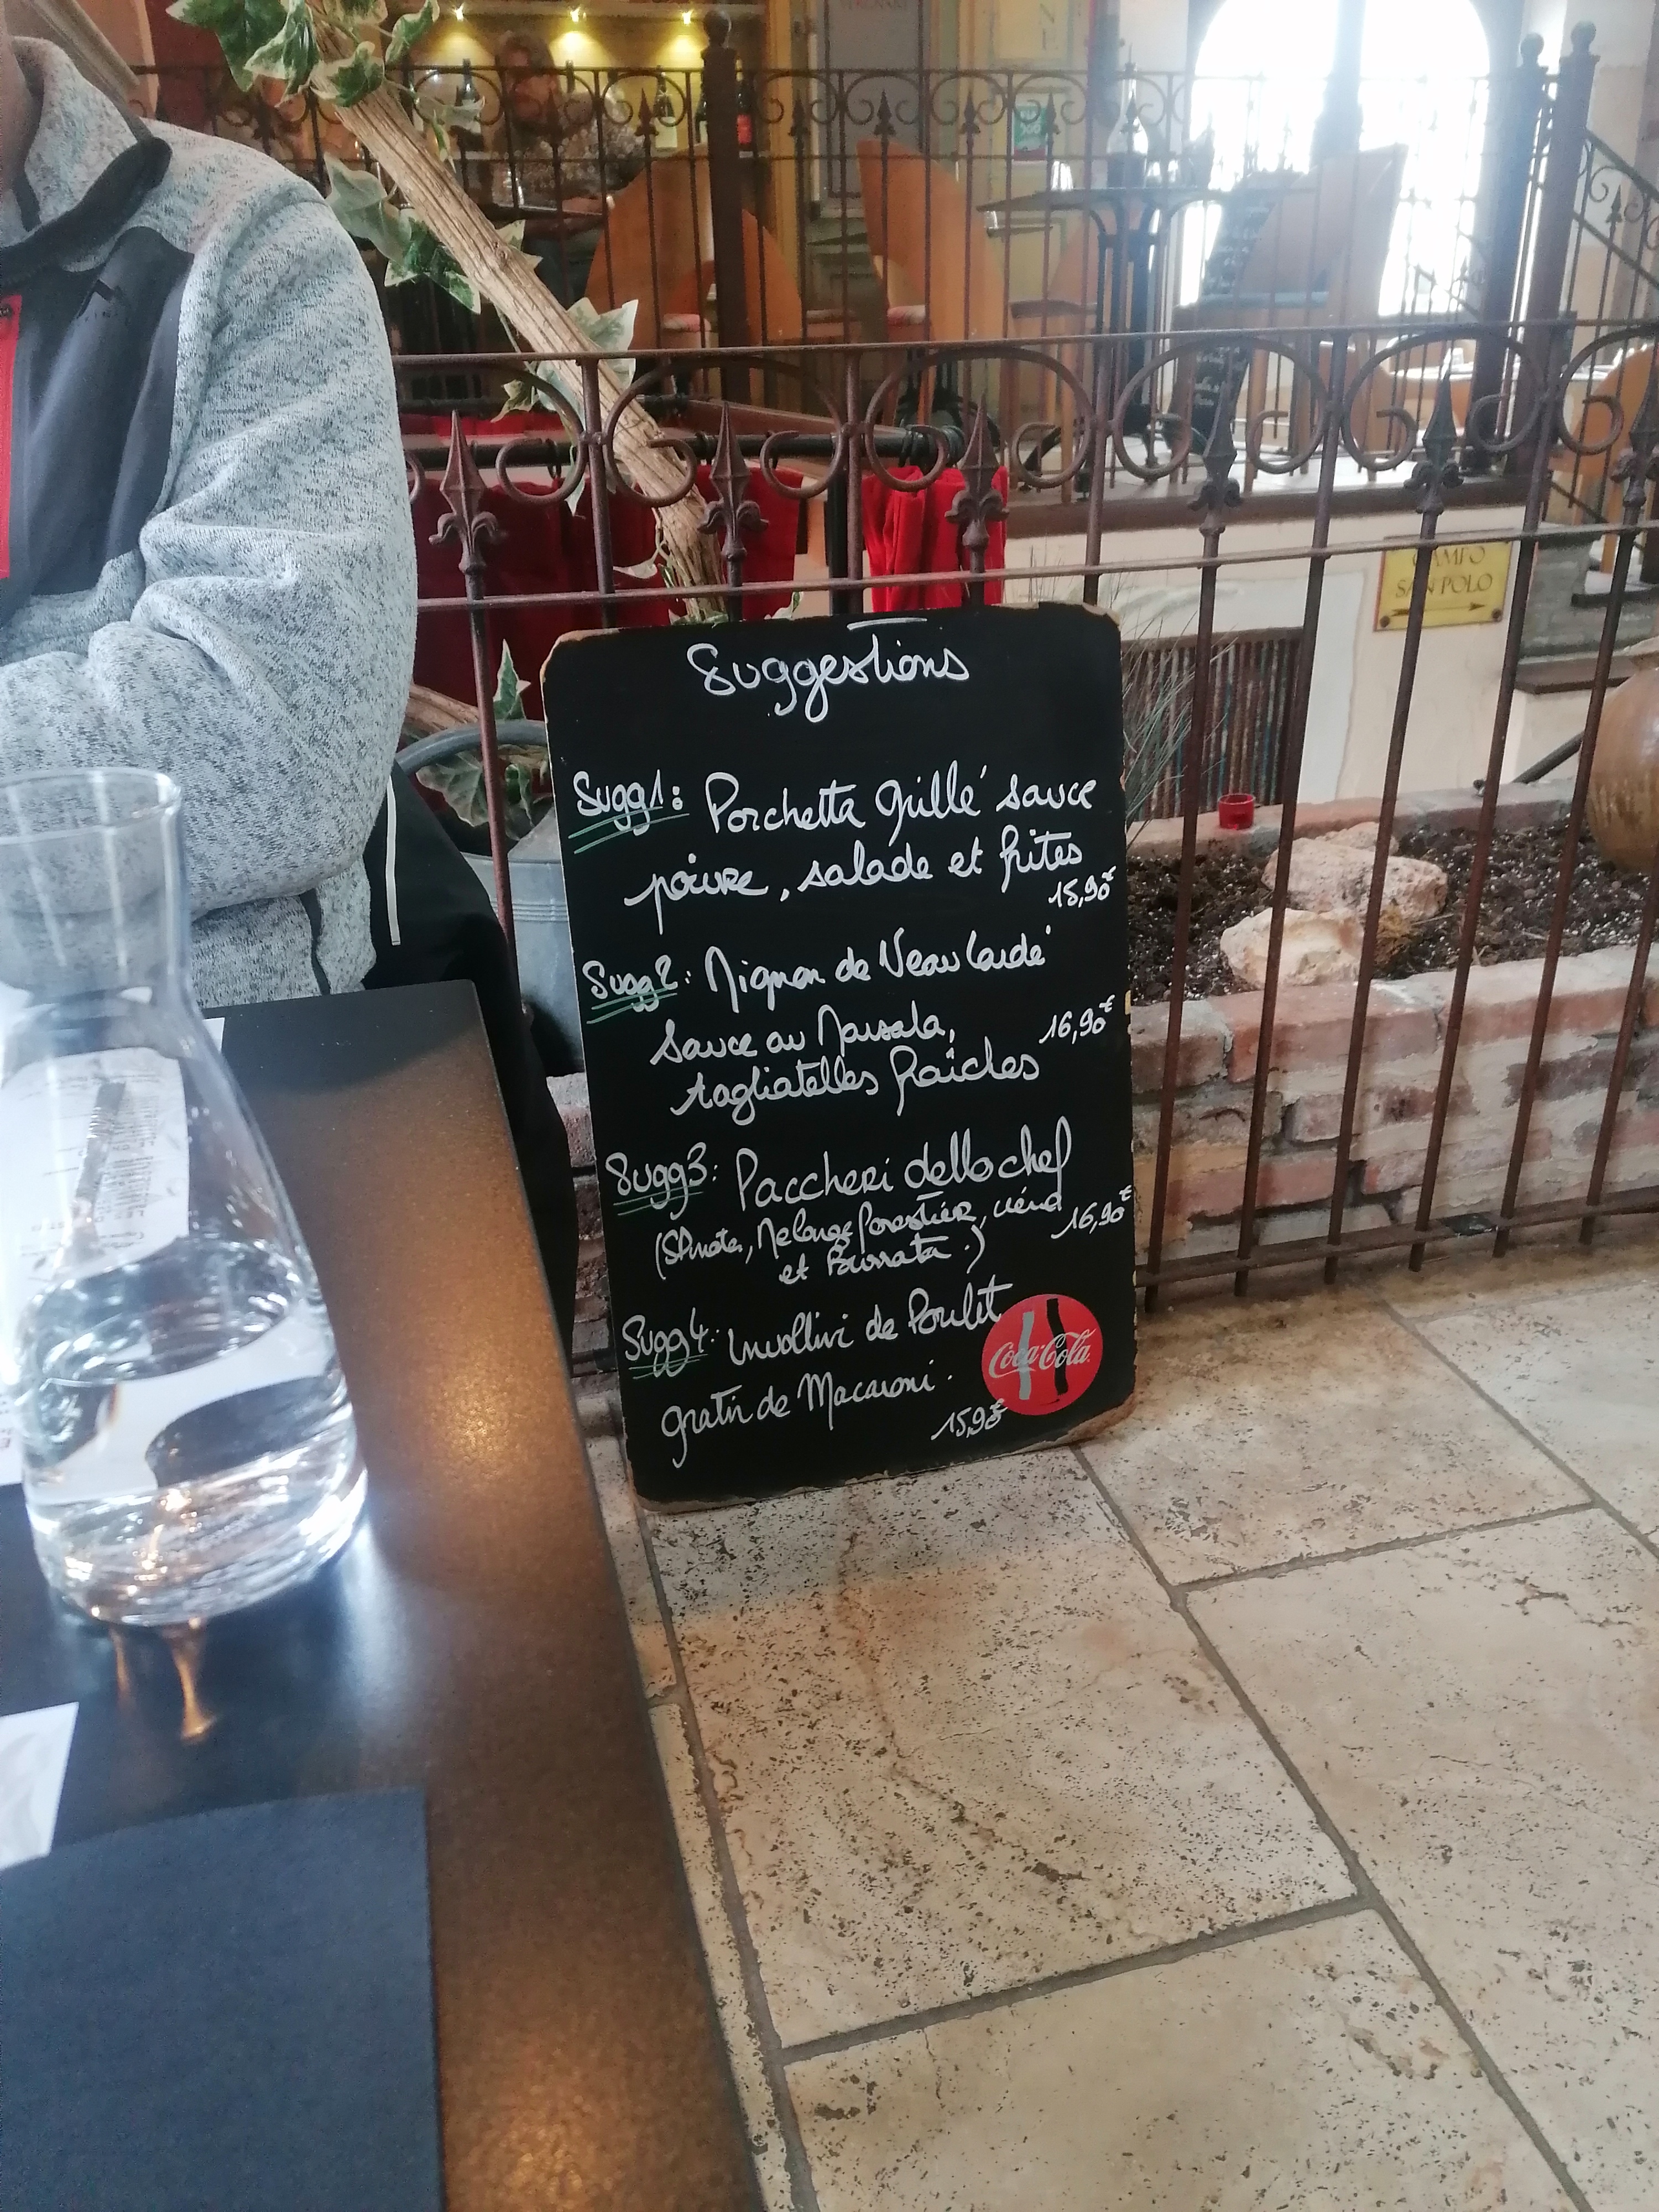 CAMPO
SAN POLO
Suggestions
Sugg1: Porchetta grillé sauce
poivre, salade et frites
15,90€
Sugg2: Mignon de Veau lardé
Sauce au Marsala,
16,90€
tagliatelles fraîches
Sugg3: Paccheri dello chef
(Tomates, Mélange forestier, crème
16,90€
et Burrata.)
Sugg4: Involtini de Poulet
Coca-Cola
gratin de Macaroni.
15,90€